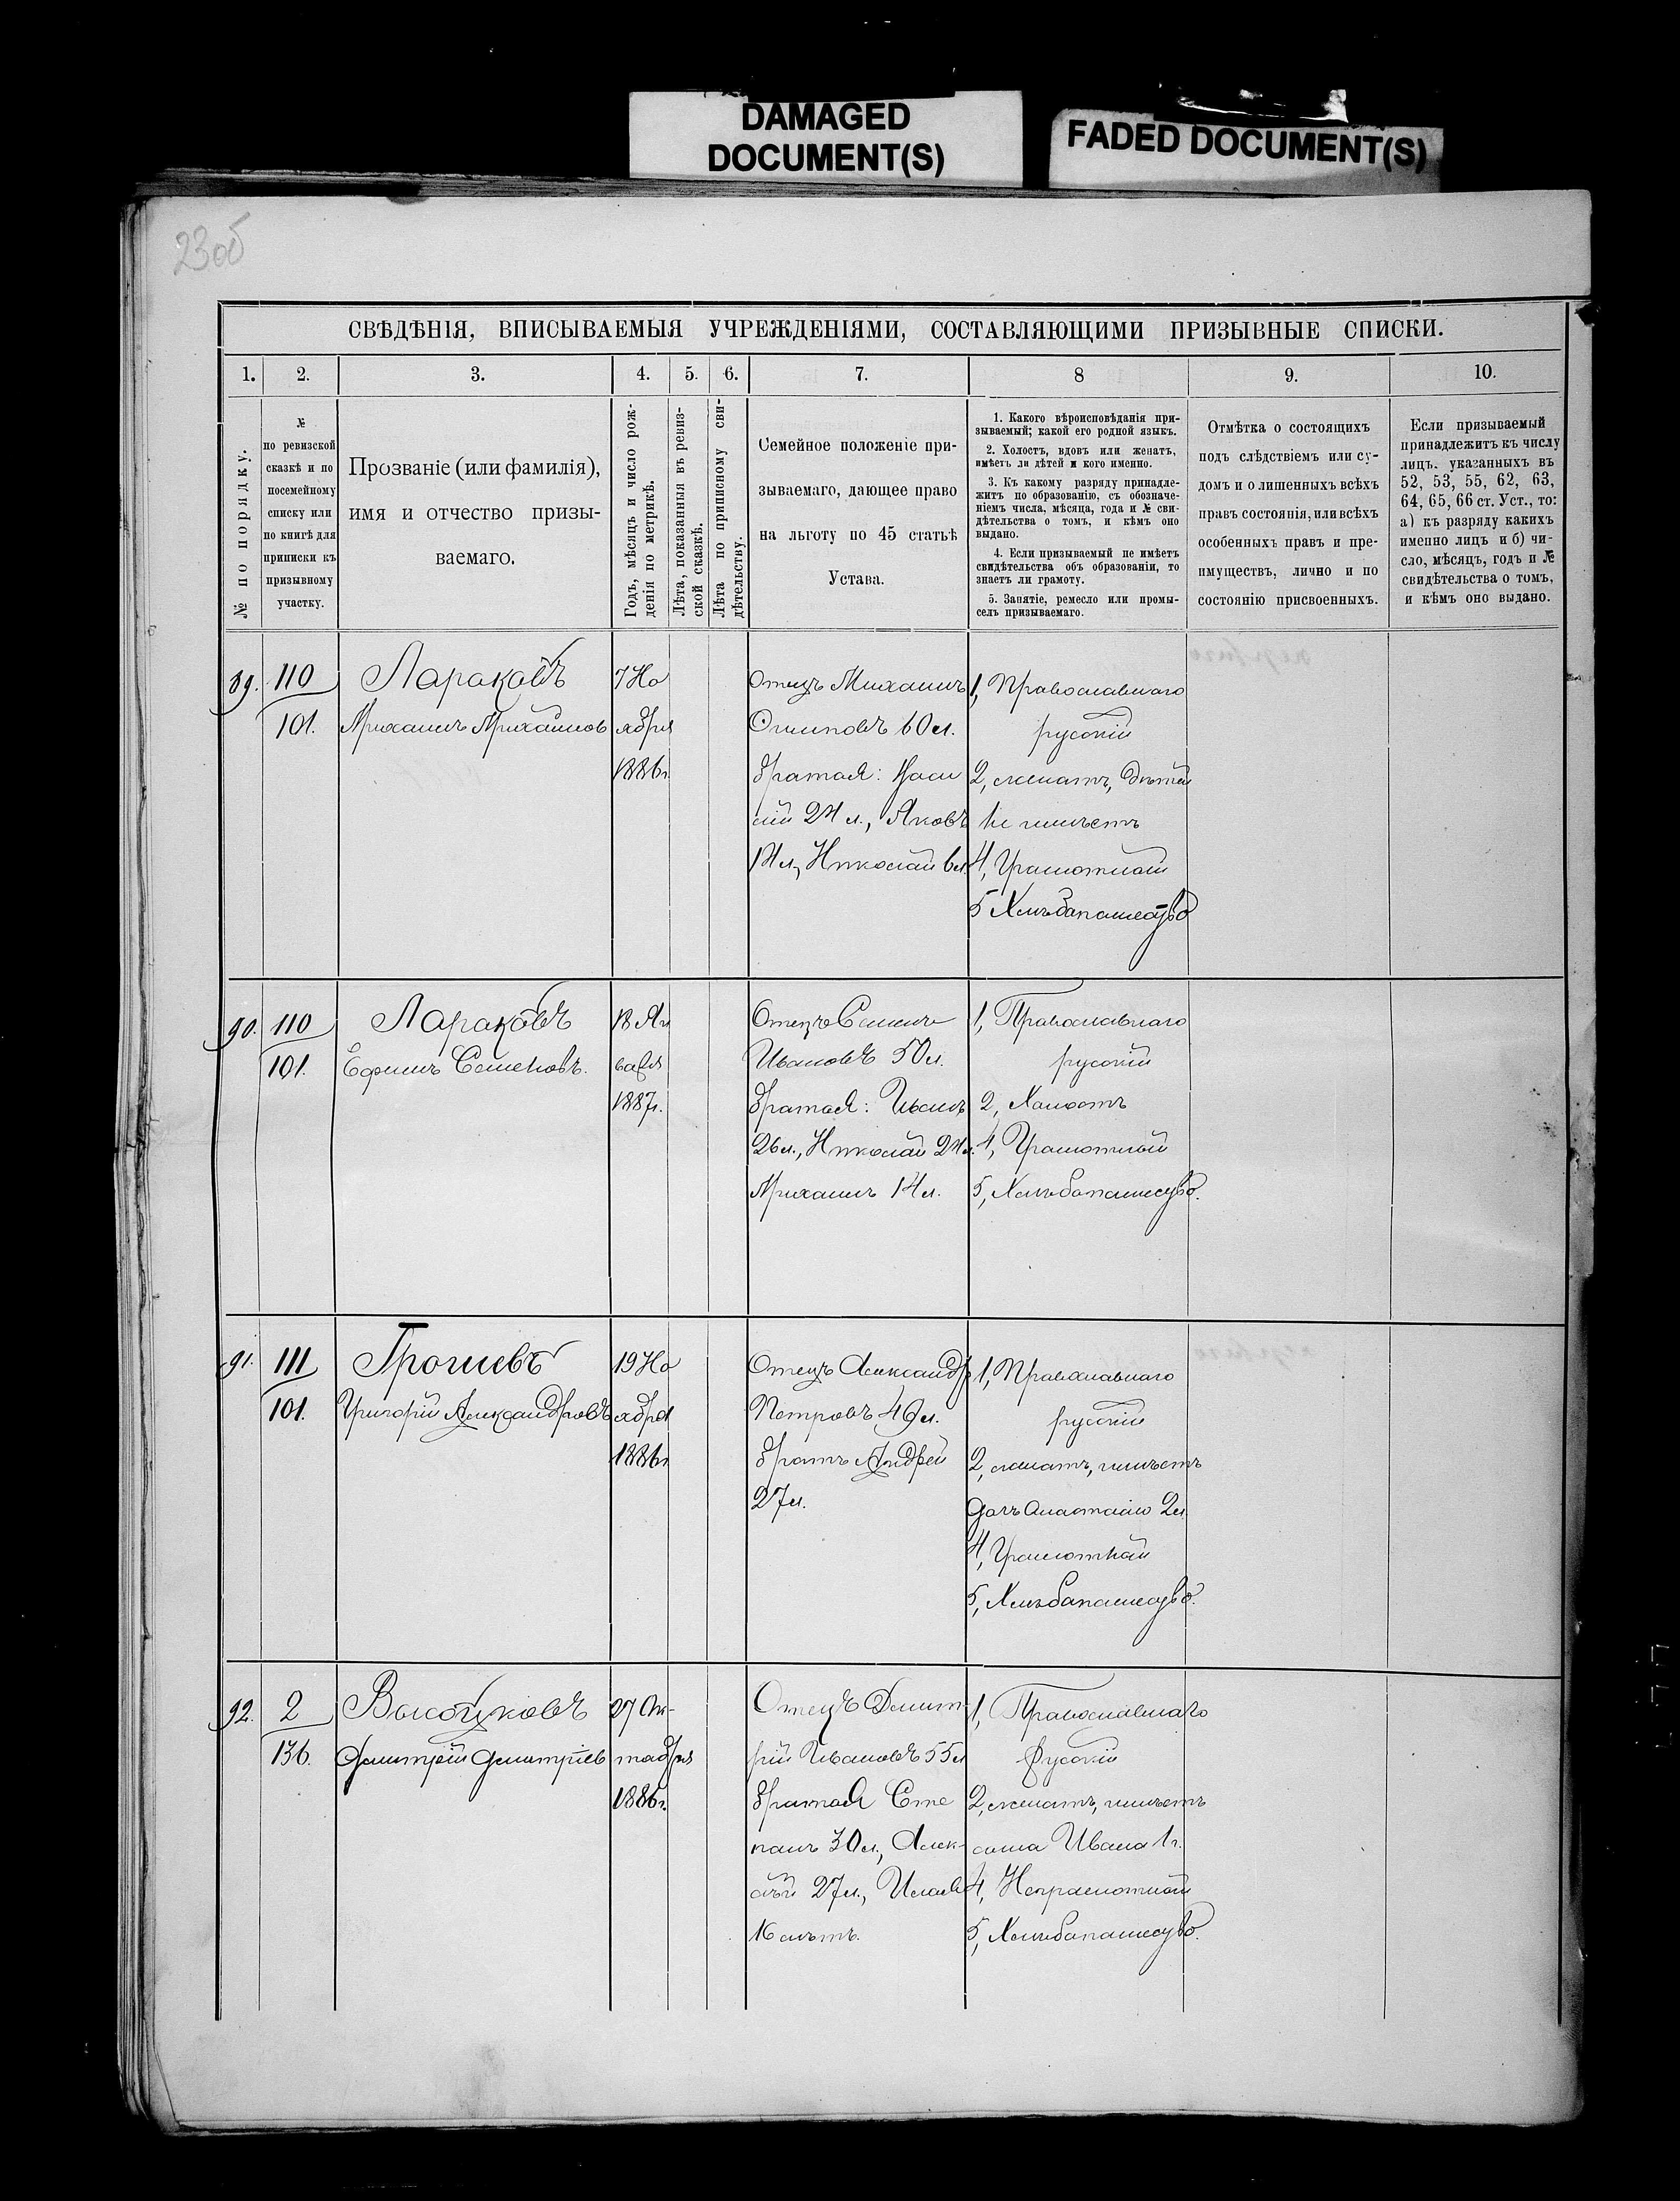 DAMAGED
DOCUMENT(S)
FADED DOCUMENT(S)
23об
СВѢДѢНІЯ, ВПИСЫВАЕМЫЯ УЧРЕЖДЕНІЯМИ, СОСТАВЛЯЮЩИМИ ПРИЗЫВНЫЕ СПИСКИ.
1. 2. 3. 4. 5. 6. 7. 8 9. 10.
№ по порядку.
№
по ревизской
сказкѣ и по
посемейному
списку или
по книгѣ для
приписки къ
призывному
участку.
Прозваніе (или фамилія),
имя и отчество призы-
ваемаго.
Годъ, мѣсяцъ и число рож-
денія по метрикѣ.
Лѣта, показанныя въ ревиз-
ской сказкѣ.
Лѣта по приписному сви-
дѣтельству.
Семейное положеніе при-
зываемаго, дающее право
на льготу по 45 статьѣ
Устава.
1. Какого вѣроисповѣданія при-
зываемый; какой его родной языкъ.
2. Холостъ, вдовъ или женатъ,
имѣетъ ли дѣтей и кого именно.
3. Къ какому разряду принадле-
житъ по образованію, съ обозначе-
ніемъ числа, мѣсяца, года и № сви-
дѣтельства о томъ, и кѣмъ оно
выдано.
4. Если призываемый не имѣетъ
свидѣтельства объ образованіи, то
знаетъ ли грамоту.
5. Занятіе, ремесло или промы-
селъ призываемаго.
Отмѣтка о состоящихъ
подъ слѣдствіемъ или су-
домъ и о лишенныхъ всѣхъ
правъ состоянія, или всѣхъ
особенныхъ правъ и пре-
имуществъ, лично и по
состоянію присвоенныхъ.
Если призываемый
принадлежитъ къ числу
лицъ, указанныхъ въ
52, 53, 55, 62, 63,
64, 65, 66 ст. Уст., то:
а) къ разряду какихъ
именно лицъ и б) чи-
сло, мѣсяцъ, годъ и №
свидѣтельства о томъ,
и кѣмъ оно выдано.
89.
110
101.
Лараковъ
Михаилъ Михаиловъ
7 Но
ября
1886г.
Отецъ Михаилъ
Осиповъ 60л.
братья: Васи
лій 24 л., Яковъ
14л, Николай 6л.
1, Православнаго
русскій
2, женатъ, дѣтей
не имѣетъ
4, Грамотный
5 Хлѣбопашество
90.
110
101.
Лараковъ
Ефимъ Семеновъ.
18 Ян
варя
1887г.
Отецъ Семенъ
Ивановъ 50л.
братья: Иванъ
26л., Николай 24л.
Михаилъ 14л.
1, Православнаго
русскій
2, Холостъ
4, Грамотный
5, Хлѣбопашество.
91.
111
101.
Грошевъ
Григорій Александровъ
19 Но
ября
1886г.
Отецъ Александръ
Петровъ 49л.
братъ Андрей
27л.
1, Православнаго
русскій
2, женатъ, имѣетъ
дочь Анастасію 2л.
4, Грамотный
5, Хлѣбопашество.
92.
2
136.
Высоцковъ
Дмитрій Дмитріев
27 Ок-
тября
1886г.
Отецъ Дмит-
рій Ивановъ 55л
братья Сте
панъ 30л., Алек-
сѣй 27л.,
16 лѣтъ.
1, Православнаго
Русскій
2, женатъ, имѣетъ
сына Ивана 1г.
4, Неграмотный
5, Хлѣбопашество.